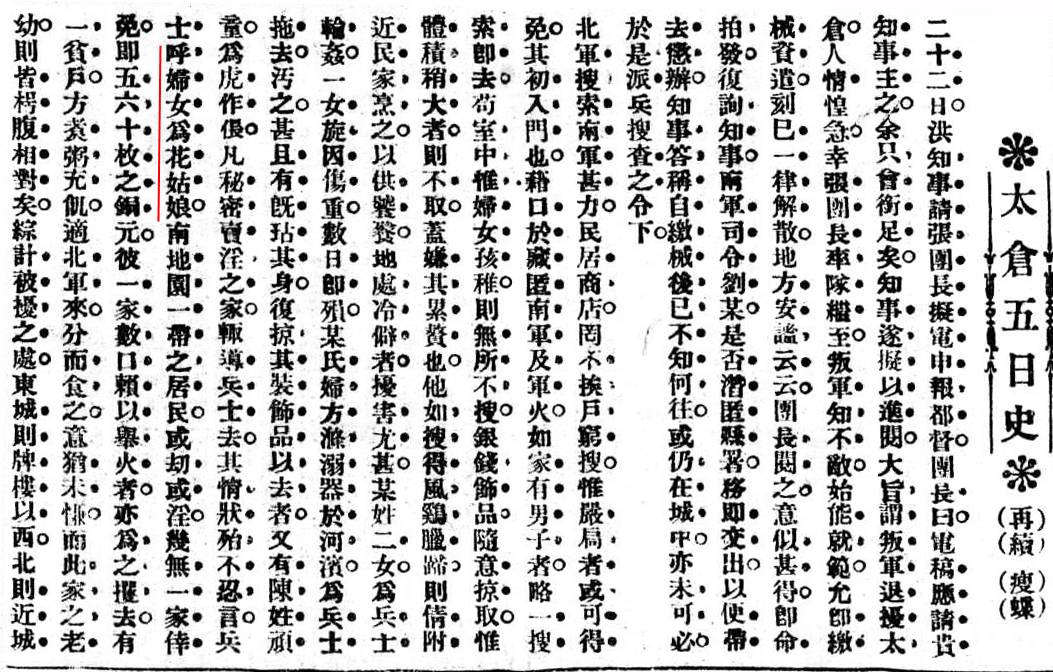 太倉五日史
（再續）（瘦蝶）
二十二日洪知事請張團長擬電申報都督團長曰電稿應請貴
知事主之余只會銜足矣知事遂擬以進閱大旨謂叛軍退擾太
倉人情惶急幸張團長率隊繼至叛軍知不敵始能就範允卽繳
械資遣刻已一律解散地方安謐云云團長閱之意似甚得卽命
拍發復詢知事南軍司令劉某是否潛匿縣署務卽交出以便帶
去懲辦知事答稱自繳械後已不知何往或仍在城中亦未可必
於是派兵搜查之令下
北軍搜索南軍甚力民居商店罔不挨戶窮搜惟嚴扃者或可得
免其初入門也藉口於藏匿南軍及軍火如家有男子者略一搜
索卽去苟室中惟婦女孩稚則無所不搜銀錢飾品隨意掠取惟
體積稍大者則不取蓋嫌其累贅也他如搜得風鷄臘蹄則倩附
近民家烹之以供饕餮地處冷僻者擾害尤甚某姓二女爲兵士
輪姦一女旋因傷重數日卽殞某氏婦方滌溺器於河濱爲兵士
拖去汚之甚且有旣玷其身復掠其裝飾品以去者又有陳姓頑
童爲虎作倀凡秘密賣淫之家輒導兵士去其情狀殆不忍言兵
士呼婦女爲花姑娘南地園一帶之居民或刧或淫幾無一家倖
免卽五六十枚之銅元彼一家數口賴以舉火者亦爲之攫去有
一貧戶方煮粥充飢適北軍來分而食之意猶未慊而此家之老
幼則皆枵腹相對矣綜計被擾之處東城則牌樓以西北則近城